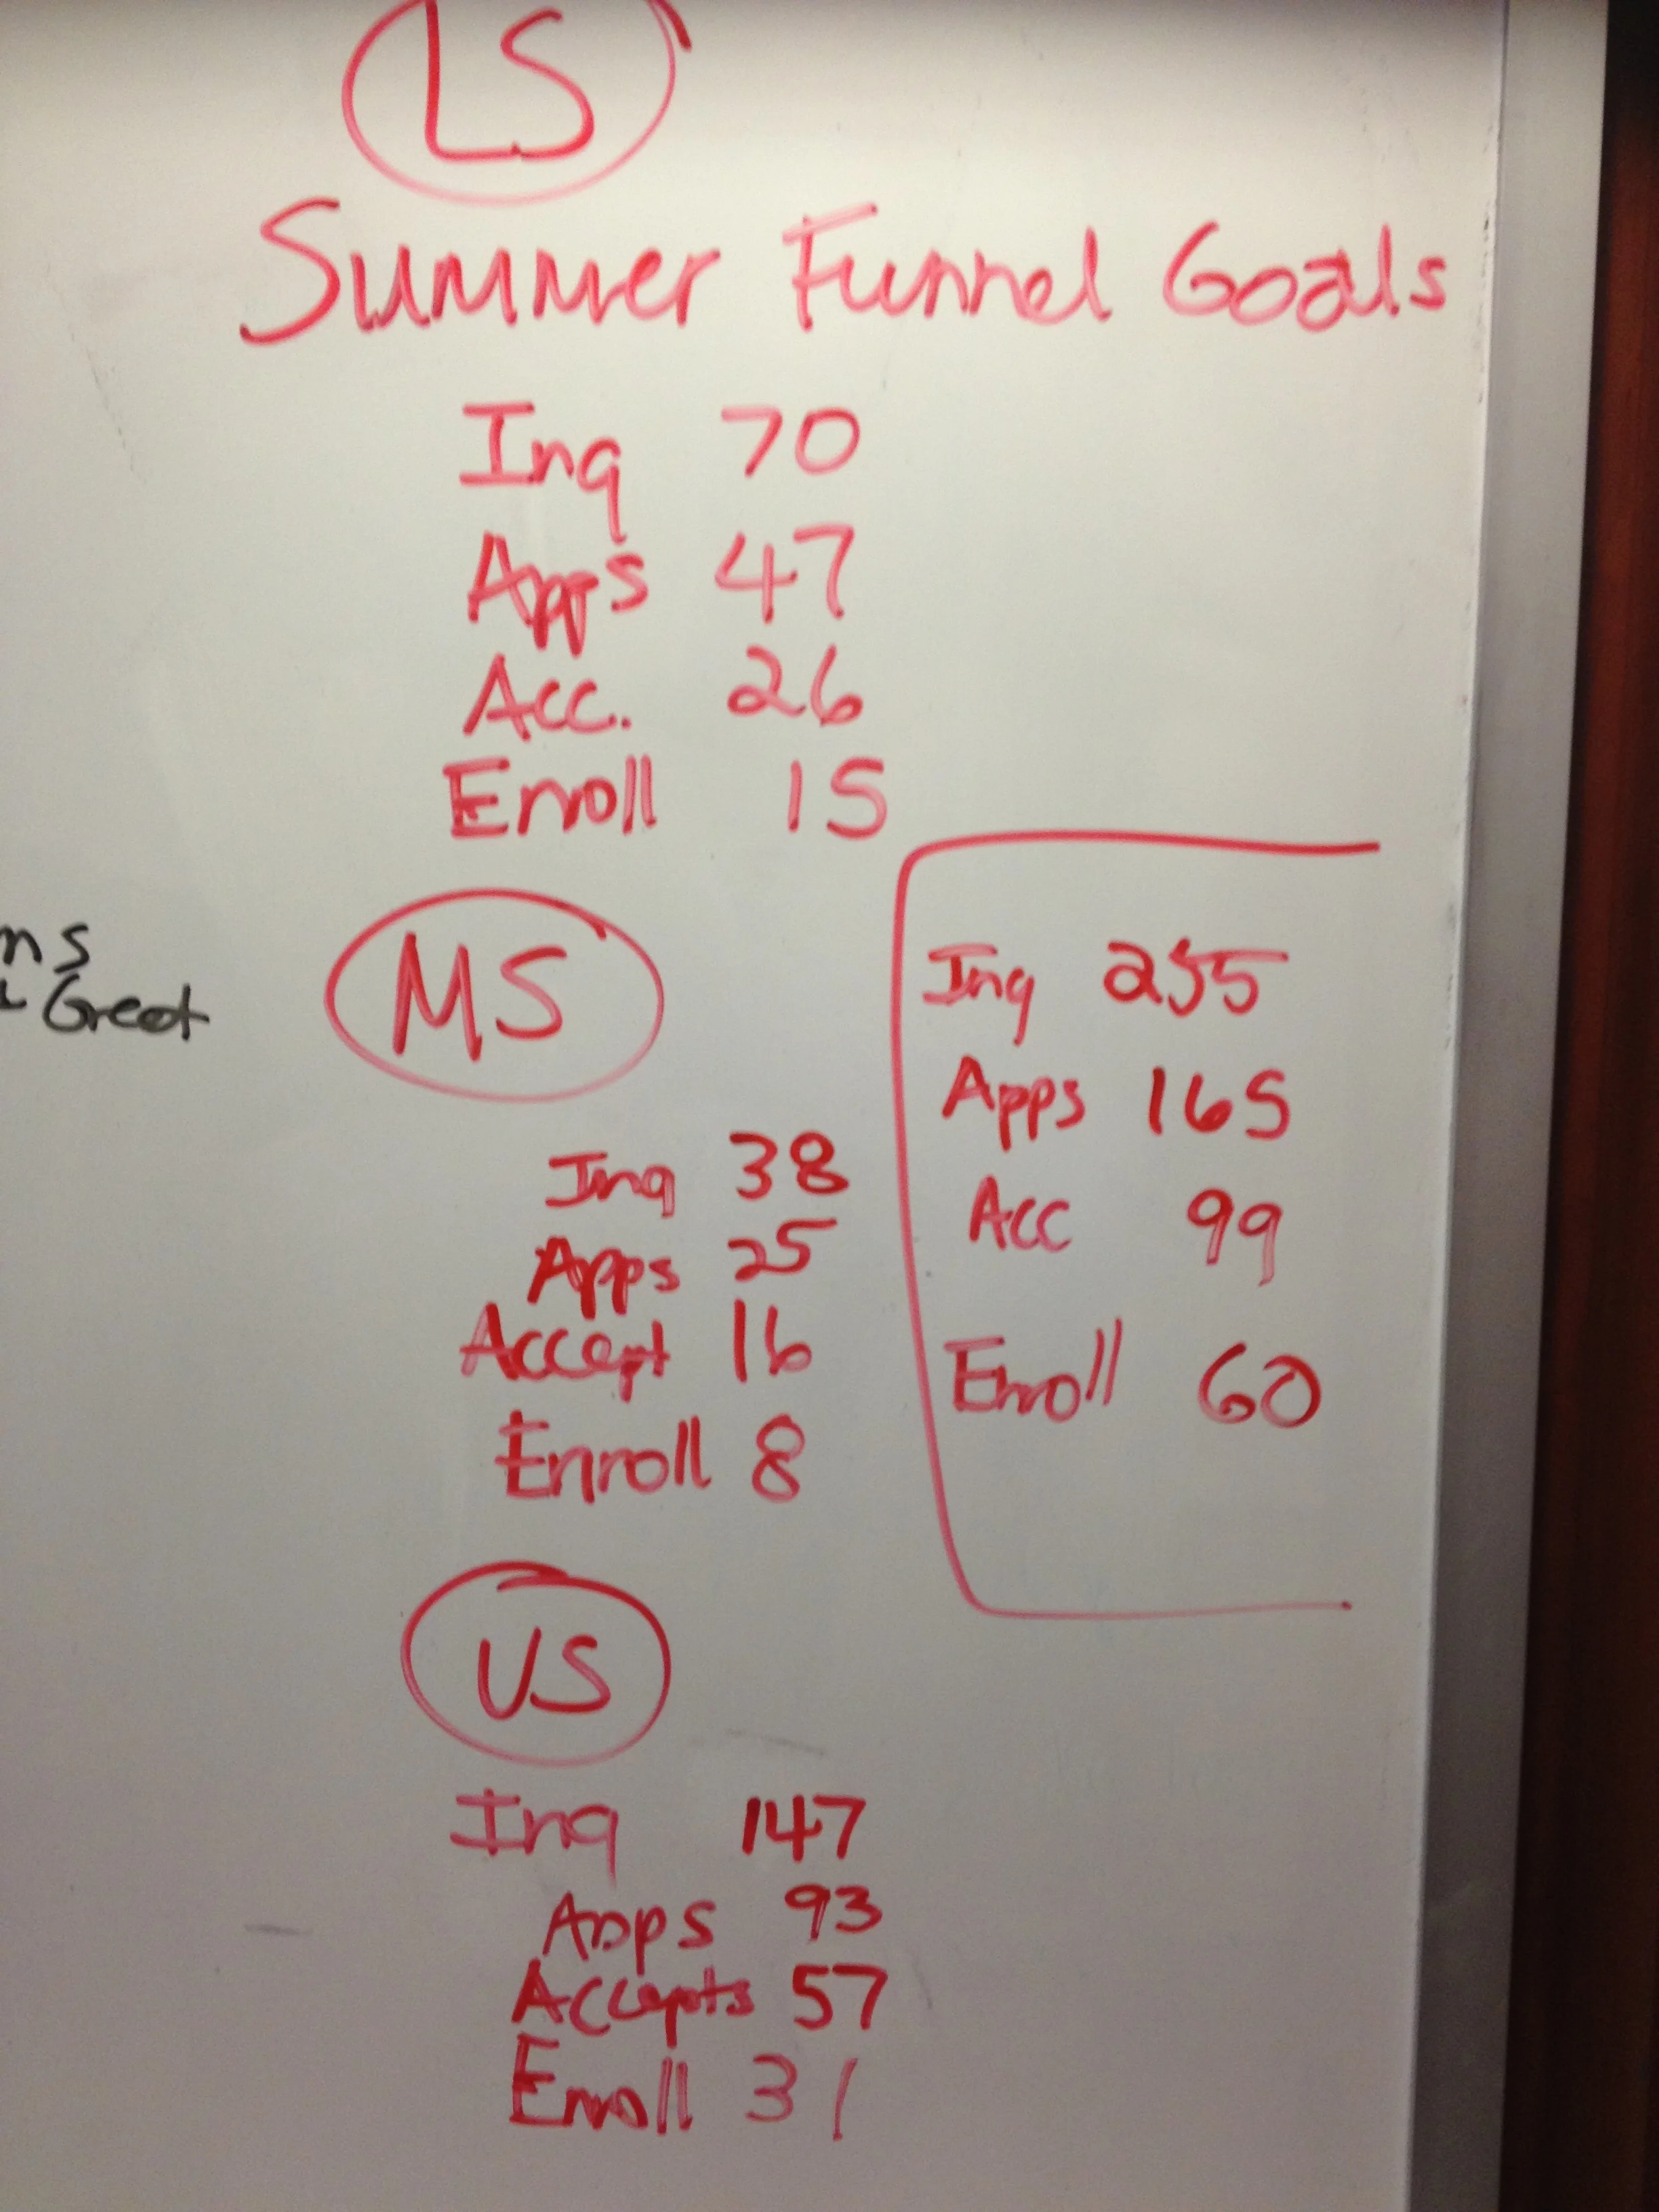 LS
Summer Funnel Goals
Inq 70
Apps 47
Acc. 26
Enroll 15
ns
Greet
MS
Inq 38
Apps 25
Accept 16
Enroll 8
Inq 255
Apps 165
Acc 99
Enroll 60
US
Inq 147
Apps 93
Accepts 57
Enroll 31